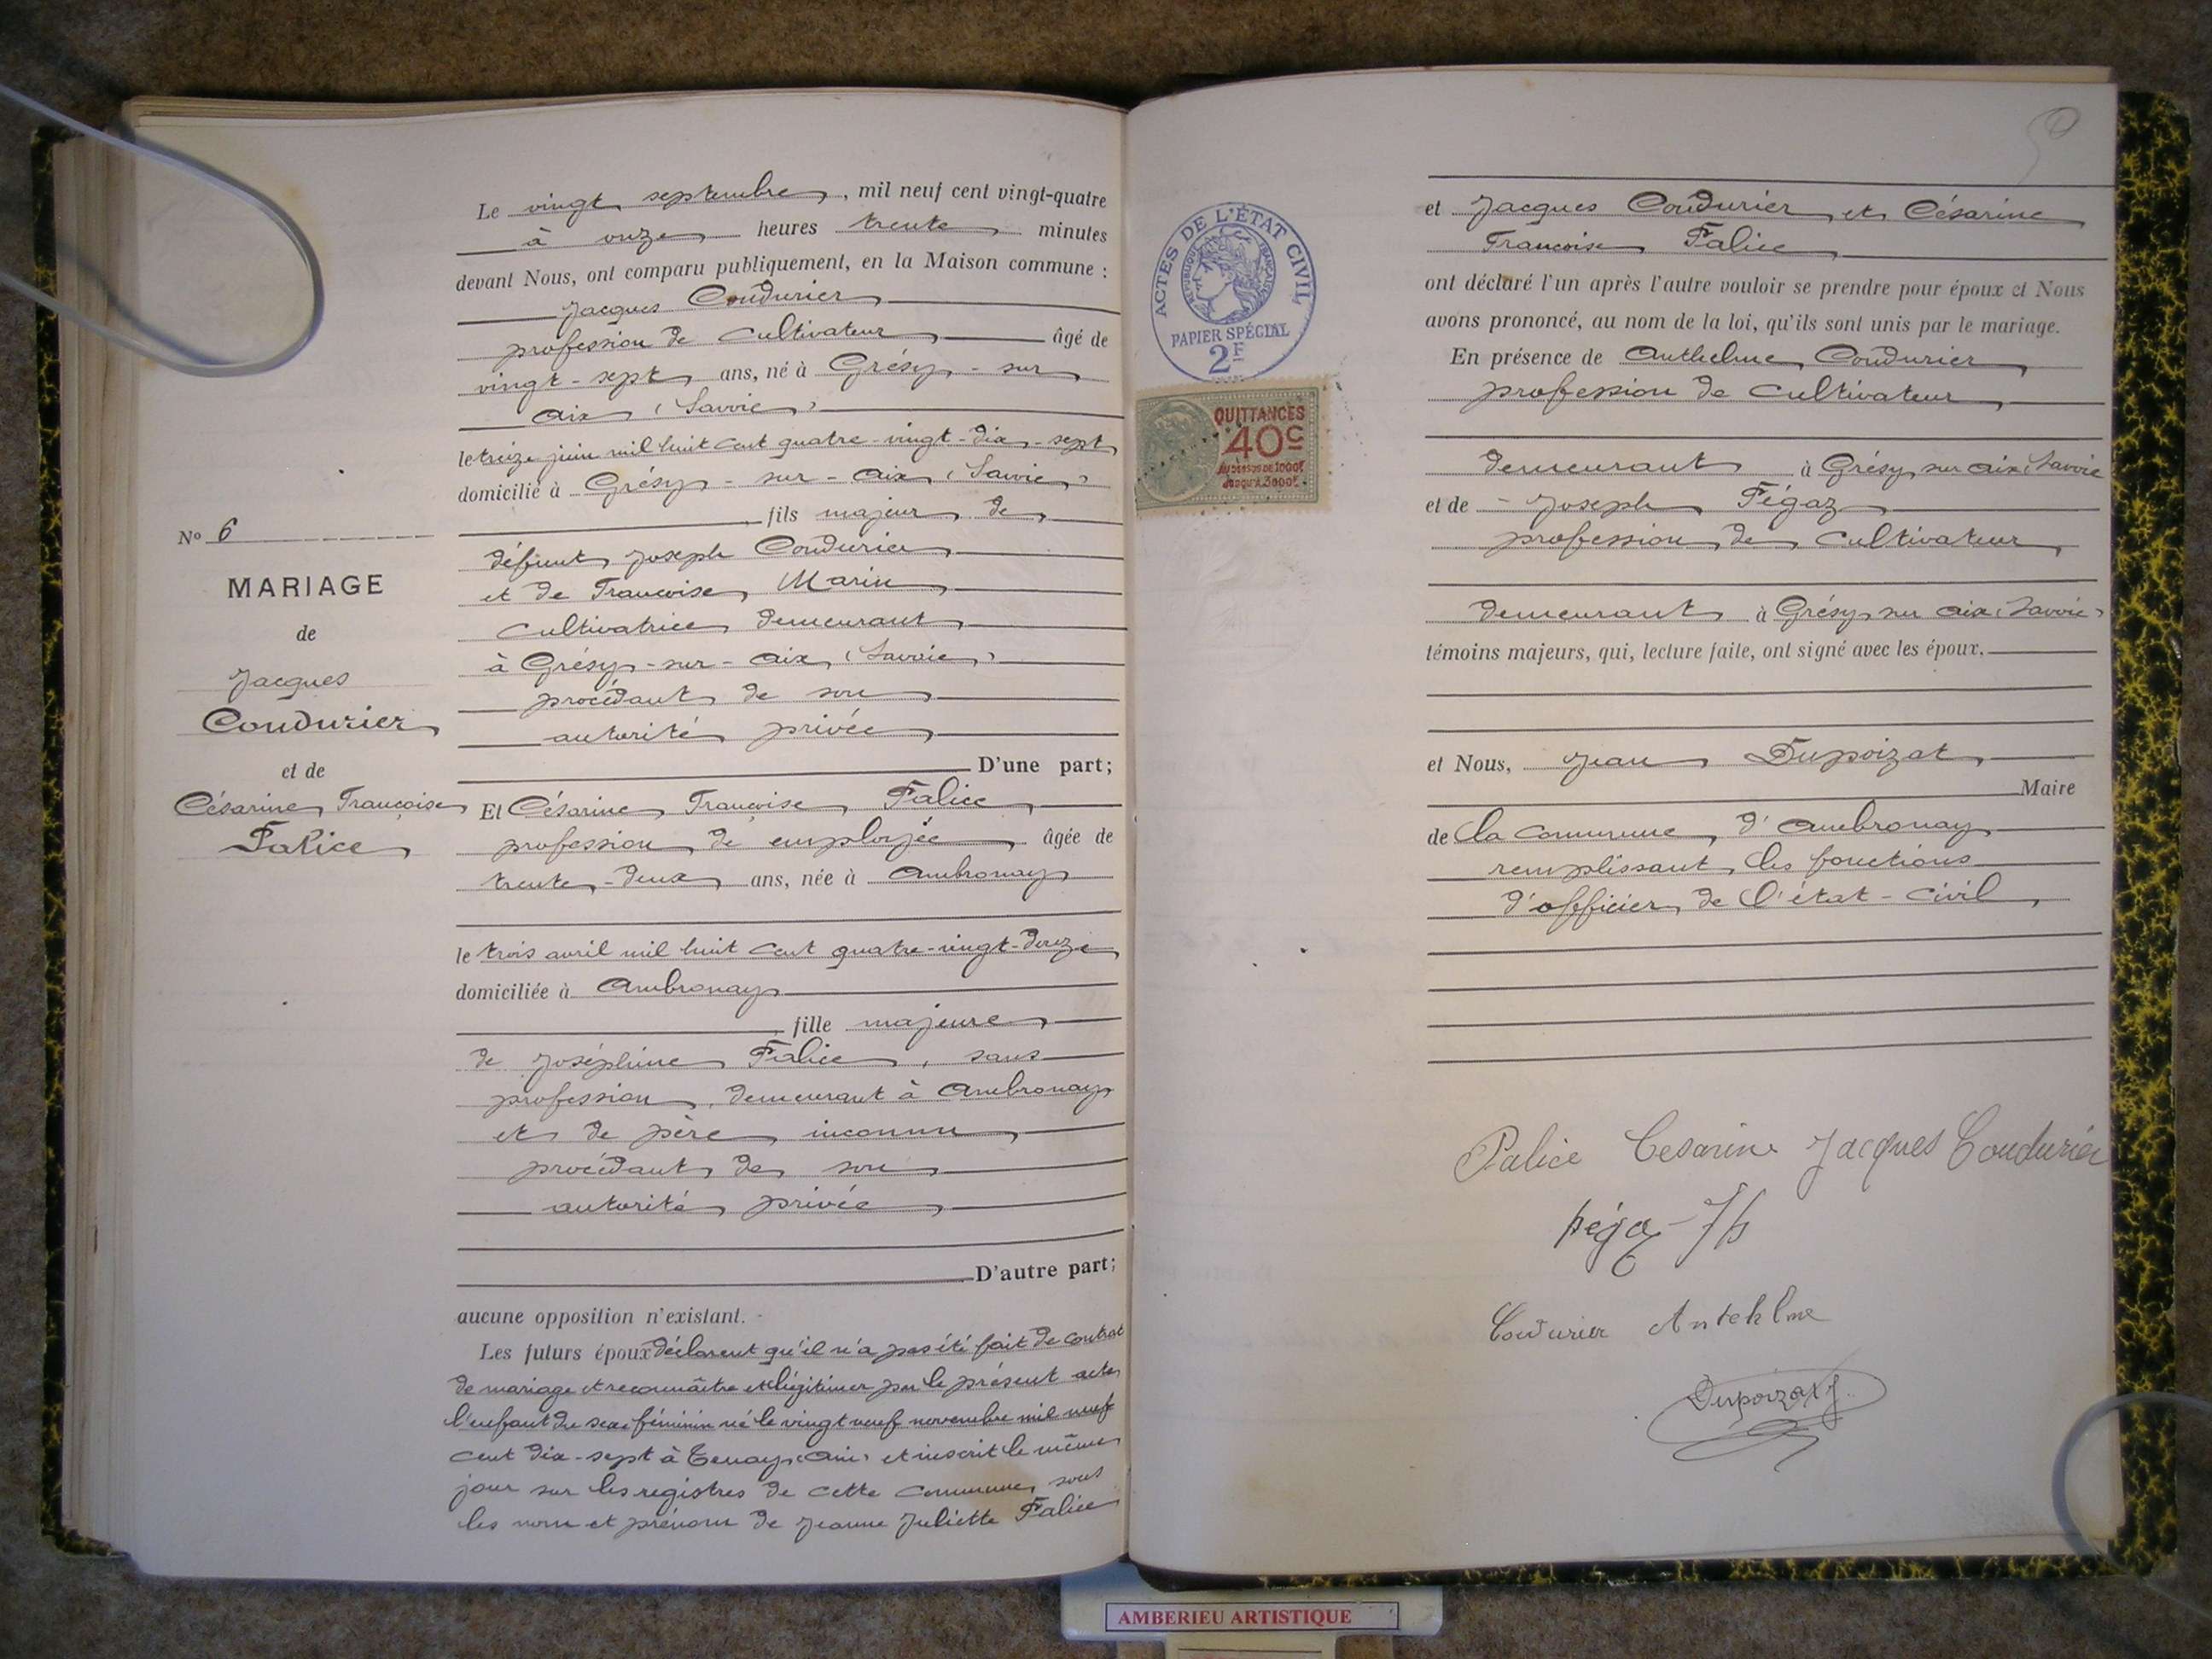 Le vingt septembre, mil neuf cent vingt-quatre
à onze heures trente minutes
devant Nous, ont comparu publiquement, en la Maison commune :
Jacques Coudurier
profession de cultivateur âgé de
vingt-sept ans, né à Grésy-sur
Aix (Savoie)
le treize juin mil huit cent quatre-vingt-dix-sept
domicilié à Grésy-sur-Aix (Savoie)
fils majeur de
défunt Joseph Coudurier
et de Françoise Marin
cultivatrice demeurant
à Grésy-sur-Aix (Savoie)
procédant de son
autorité privée
D'une part;
Et Césarine Françoise Palice
profession de employée âgée de
trente-deux ans, née à Ambronay
le trois avril mil huit cent quatre-vingt-douze
domiciliée à Ambronay
fille majeure
de Joséphine Palice, sans
profession, demeurant à Ambronay
et de père inconnu
procédant de son
autorité privée
D'autre part;
aucune opposition n'existant.
Les futurs époux déclarent qu'il n'a pas été fait de contrat
de mariage et reconnaître et légitimer par le présent acte
l'enfant du sexe féminin né le vingt neuf novembre mil neuf
cent dix-sept à Tenay (Ain) et inscrit le même
jour sur les registres de cette commune sous
les nom et prénom de Jeanne Juliette Palice
No 6
MARIAGE
de
Jacques
Coudurier
et de
Césarine Françoise
Palice
ACTES DE L'ÉTAT CIVIL
RÉPUBLIQUE FRANÇAISE
PAPIER SPÉCIAL
2F
QUITTANCES
40c
Au dessus de 1000f
Jusqu'à 3000f
50
et Jacques Coudurier et Césarine
Francoise Palice
ont déclaré l'un après l'autre vouloir se prendre pour époux et Nous
avons prononcé, au nom de la loi, qu'ils sont unis par le mariage.
En présence de Anthelme Coudurier
profession de cultivateur
demeurant à Grésy sur Aix (Savoie
et de - Joseph Pégaz
profession de cultivateur
demeurant à Grésy sur Aix (Savoie)
témoins majeurs, qui, lecture faite, ont signé avec les époux.
et Nous, Jean Dupoizat
Maire
de la commune d'Ambronay
remplissant les fonctions
d'officier de l'état-civil
Palice Cesarine Jacques Coudurier
pégaz Jh
Coudurier Antehlme
Dupoizat J.
AMBERIEU ARTISTIQUE